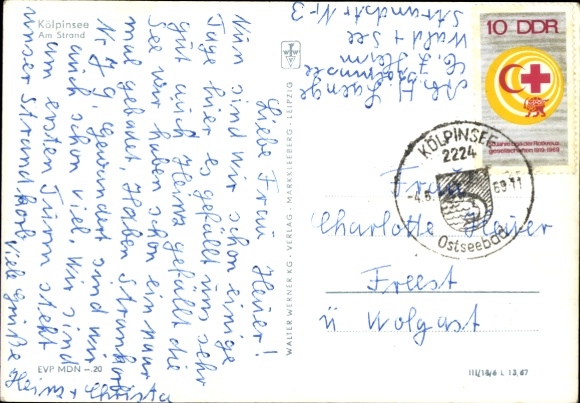 Kölpinsee
Am Strand
Liebe Frau Heuer!
Nun sind wir schon einige
Tage hier es gefällt uns sehr
gut auch Heinz gefällt die
See wir haben schon ein paar
mal gebadet, Haben Strandkorb
Nr 79. Gewandert sind wir
auch schon viel. Wir sind
am ersten Turm steht
unser Strandkorb
Viele Grüße
Heinz + Christa
EVP MDN –.20
WALTER WERNER KG · VERLAG · MARKKLEEBERG - LEIPZIG
Kölpinsee
Wald + See
Strandstr Nr 3
10 DDR
50 Jahre Liga der Rotkreuz-
gesellschaften 1919-1969
KÖLPINSEE
2224
-4.6. 69.11
Ostseebad
Frau
Charlotte Heuer
Freest
ü Wolgast
III/18/6 L 13,67